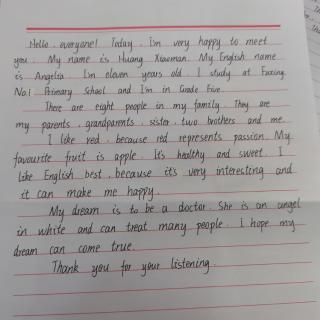 Hello, everyone! Today, I'm very happy to meet
you. My name is Huang Xiaoman. My English name
is Angelia. I'm eleven years old. I study at Faxing
No.1 Primary School and I'm in Grade Five.
There are eight people in my family. They are
my parents, grandparents, sister, two brothers and me.
I like red, because red represents passion. My
favourite fruit is apple. It's healthy and sweet. I
like English best, because it's very interesting and
it can make me happy.
My dream is to be a doctor. She is an angel
in white and can treat many people. I hope my
dream can come true.
Thank you for your listening.